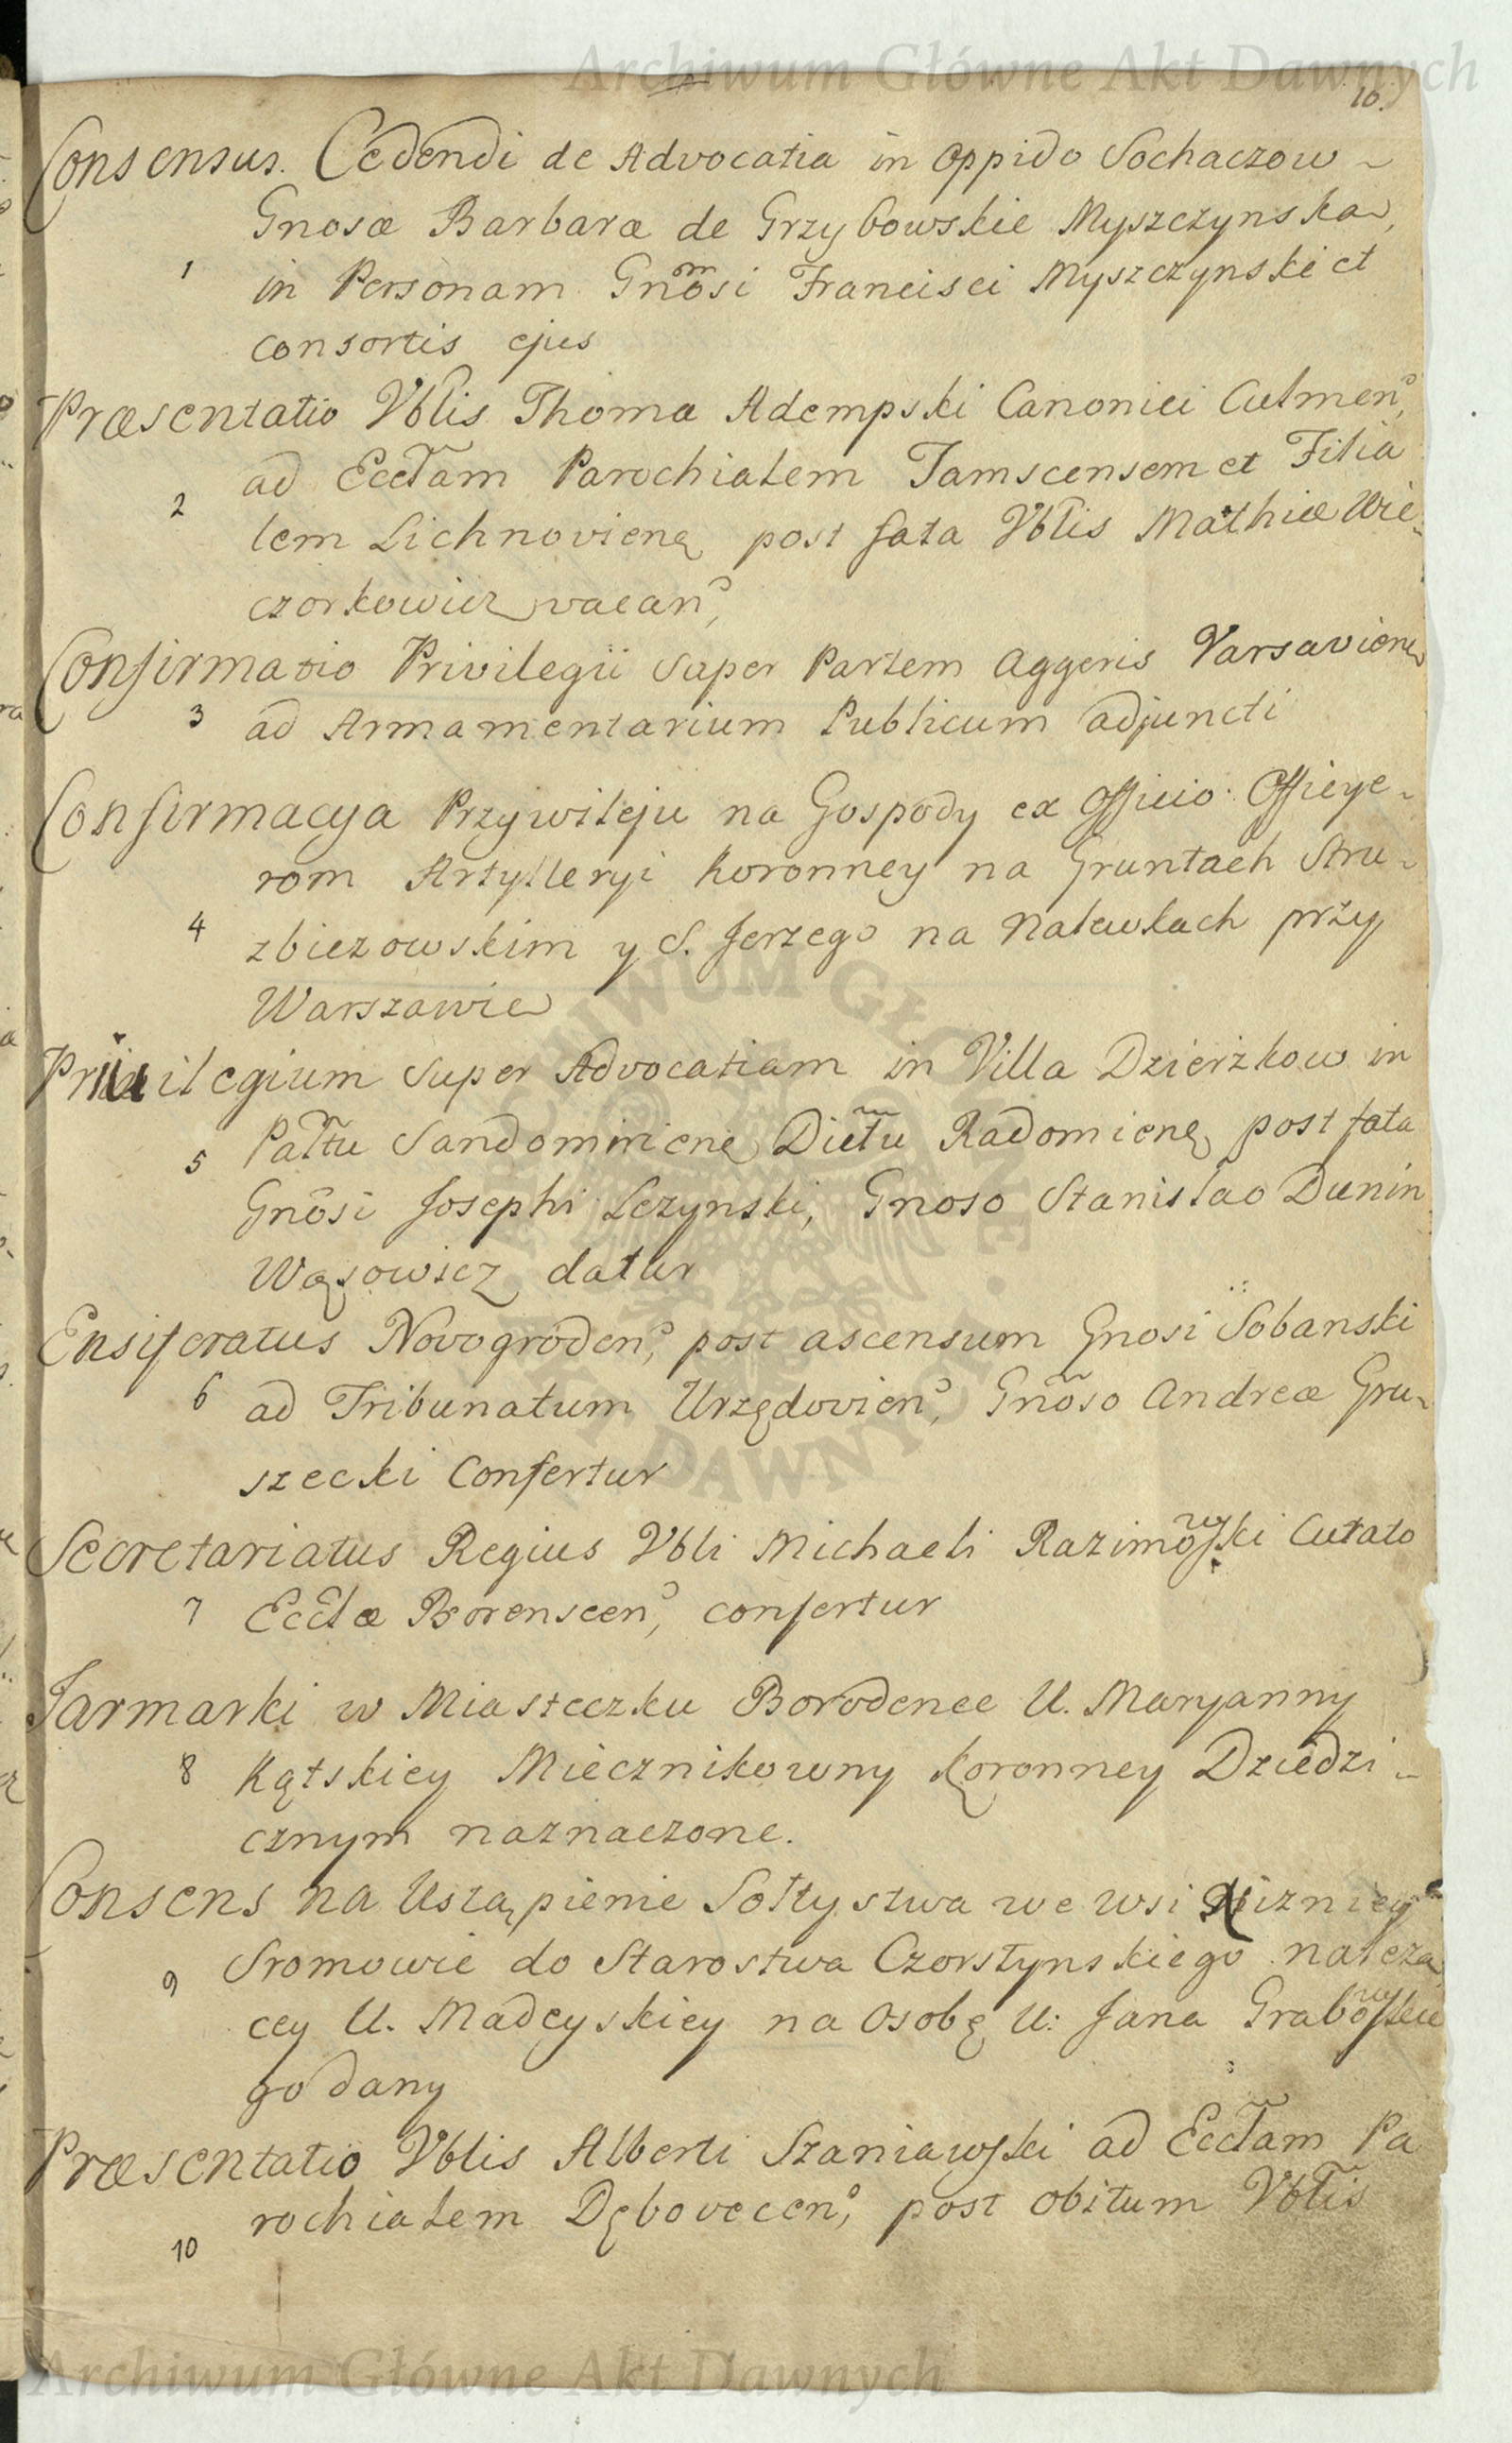 Archiwum Główne Akt Dawnych
10.
Consensus. Cedendi de Advocatia in oppido Sochaczow
Gnosæ Barbaræ de Grzybowskie Myszczynska,
1 in Personam Gnosi Francisci Myszczynski et
consortis ejus
Præsentatio Vblis Thoma Adempski Canonici Culmen,
ad Ecclam Parochialem Tamscensem et Filia
2 lem Lichnovienę post fata Vblis Mathiæ Wie-
czorkowicz vacan,
Confirmatio Privilegii super Partem Aggeris Varsavienę
3 ad Armamentarium Publicum adjuncti
Confirmacya Przywileju na Gospody ex Officio Officye-
rom Artylleryi Koronney na Gruntach Stru-
4 zbiezowskim y S. Jerzego na Nalewkach przy
Warszawie
Privilegium super Advocatiam in Villa Dzierżkow in
5 Palttu Sandomirienę Dictu Radomienę post fata
Gnosi Josephi Lezynski, Gnoso Stanislao Dunin
Wąsowicz datur
Ensiferatus Novogroden, post ascensum Gnosi Sobanski
6 ad Tribunatum Urzędovien, Gnoso Andreæ Gru-
szecki Confertur
Secretariatus Regius Vbli Michaeli Razimowski Cutato
7 Ecclæ Borenscen, confertur
Jarmarki w Miasteczku Borodence U. Maryanny
8 Kątskiey Miecznikowny Koronney Dziedzi-
cznym naznaczone.
Consens na Ustąpienie Sołtystwa we wsi Nizniey
9 Sromowie do Starostwa Czorsztynskiego należą
cey U. Madeyskiey na Osobę U: Jana Grabowskie
go dany
Præsentatio Vblis Alberti Szaniawski ad Ecclam Pa
rochialem Dębovecen, post obitum Vblis
10
ARCHIWUM GŁÓWNE AKT DAWNYCH
Archiwum Główne Akt Dawnych